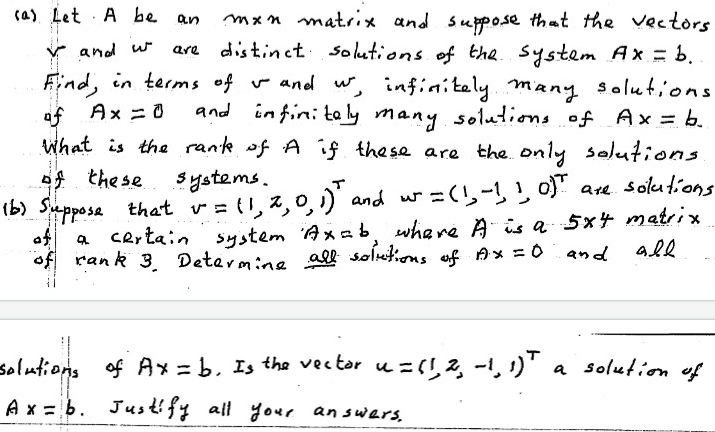 (a) Let A be an m×n matrix and suppose that the vectors
v and w are distinct solutions of the system Ax = b.
Find, in terms of v and w, infinitely many solutions
of Ax = 0 and infinitely many solutions of Ax = b.
What is the rank of A if these are the only solutions
of these systems.
(b) Suppose that v = (1, 2, 0, 1)^T and w = (1, -1, 1, 0)^T are solutions
of a certain system Ax = b, where A is a 5x4 matrix
of rank 3. Determine all solutions of Ax = 0 and all
solutions of Ax = b. Is the vector u = (1, 2, -1, 1)^T a solution of
Ax = b. Justify all your answers.